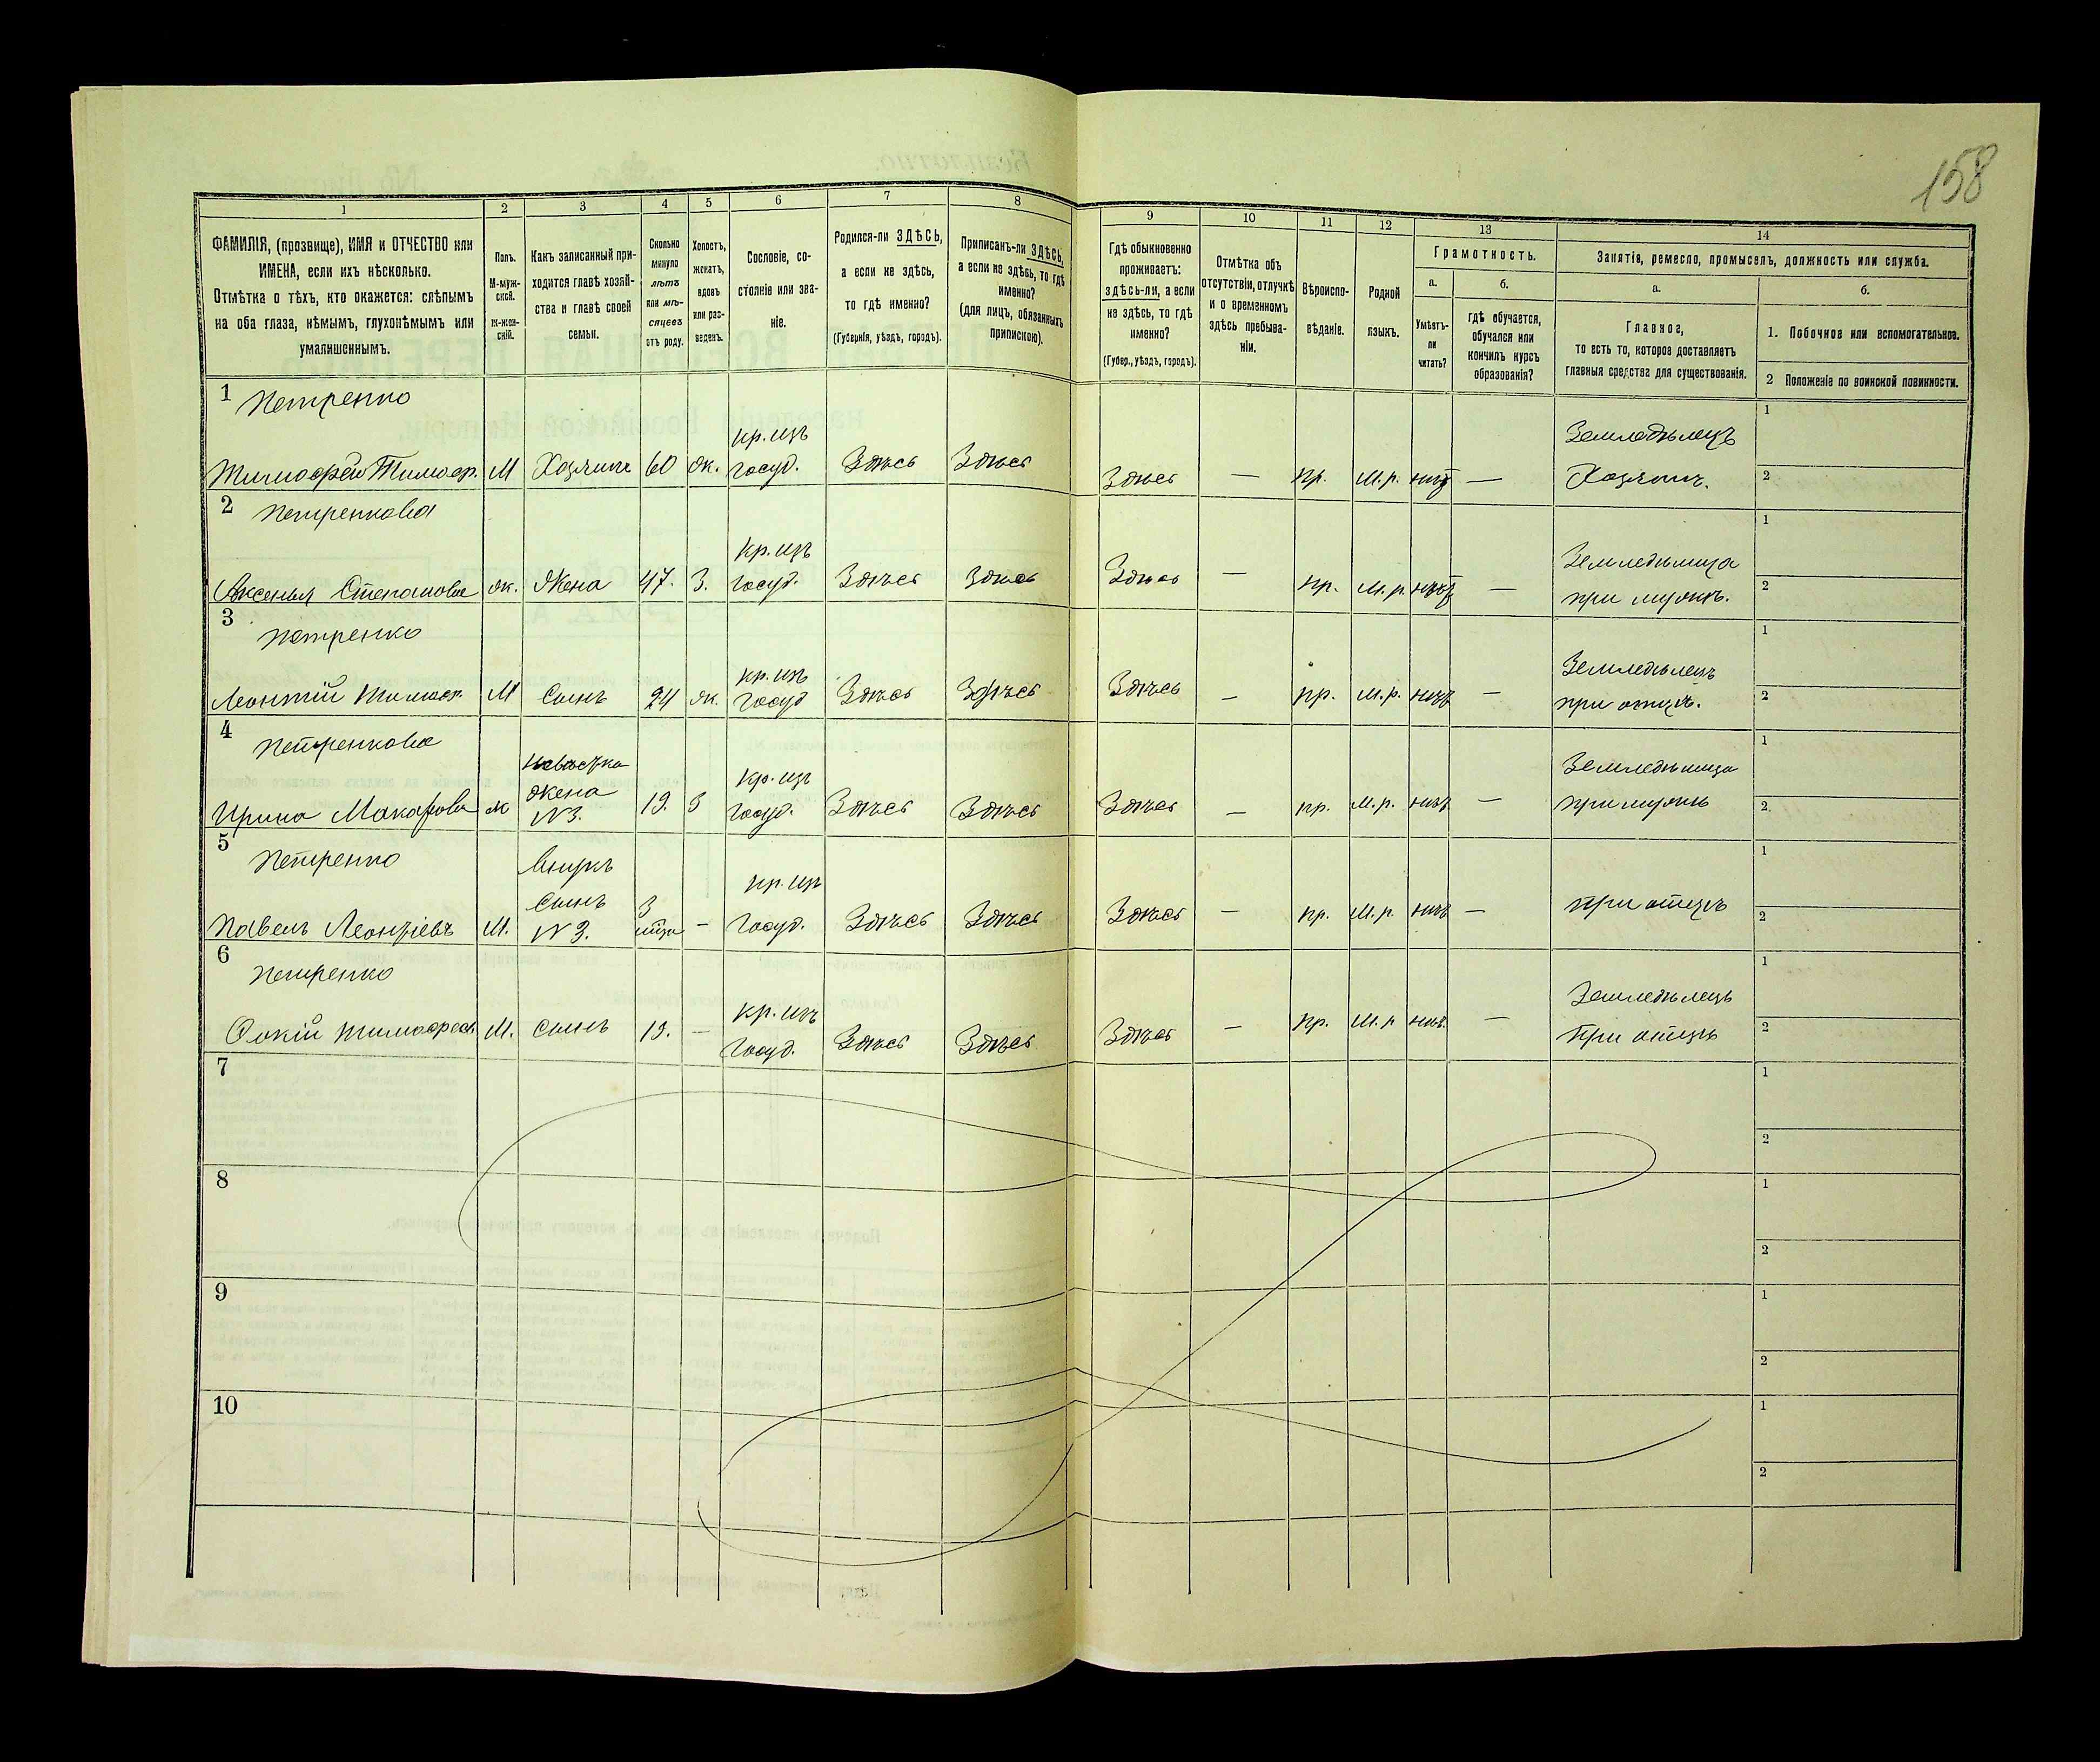 158
1 2 3 4 5 6 7 8 9 10 11 12 13 14
ФАМИЛІЯ, (прозвище), ИМЯ и ОТЧЕСТВО или
ИМЕНА, если ихъ нѣсколько.
Отмѣтка о тѣхъ, кто окажется: слѣпымъ
на оба глаза, нѣмымъ, глухонѣмымъ или
умалишеннымъ.
Полъ.
М-муж-
ской.
ж-жен-
скій.
Какъ записанный при-
ходится главѣ хозяй-
ства и главѣ своей
семьи.
Сколько
минуло
лѣтъ
или мѣ-
сяцевъ
отъ роду.
Холостъ,
женатъ,
вдовъ
или раз-
веденъ.
Сословіе, со-
стояніе или зва-
ніе.
Родился-ли ЗДѢСЬ,
а если не здѣсь,
то гдѣ именно?
(Губернія, уѣздъ, городъ).
Приписанъ-ли ЗДѢСЬ,
а если не здѣсь, то гдѣ
именно?
(для лицъ, обязанныхъ
припискою).
Гдѣ обыкновенно
проживаетъ:
здѣсь-ли, а если
не здѣсь, то гдѣ
именно?
(Губер., уѣздъ, городъ).
Отмѣтка объ
отсутствіи, отлучкѣ
и о временномъ
здѣсь пребыва-
ніи.
Вѣроиспо-
вѣданіе.
Родной
языкъ.
Грамотность.
а.
Умѣетъ-
ли
читать?
б.
гдѣ обучается,
обучался или
кончилъ курсъ
образованія?
Занятія, ремесло, промыселъ, должность или служба.
а.
Главное,
то есть то, которое доставляетъ
главныя средства для существованія.
б.
1. Побочное или вспомогательное.
2 Положеніе по воинской повинности.
1 Петренко
кр. изъ Земледѣлецъ 1
Тимофей Тимоф. М Хозяинъ 60 ж. госуд. Здѣсь Здѣсь Здѣсь — пр. М. р. нѣтъ — Хозяинъ. 2
2 Петренкова
кр. изъ Земледѣлица 1
Аксенья Степанова ж. Жена 47. З. госуд. Здѣсь Здѣсь Здѣсь — пр. М. р. нѣтъ — при мужѣ. 2
3 Петренко
кр. изъ Земледѣлецъ 1
Леонтій Тимоф. М Сынъ 24 ж. госуд Здѣсь Здѣсь Здѣсь — пр. М. р. нѣтъ — при отцѣ. 2
4 Петренкова
невѣстка кр. изъ Земледѣлица 1
жена
Ирина Макарова ж N 3. 19. З госуд. Здѣсь Здѣсь Здѣсь — пр. М. р. нѣтъ — при мужѣ 2.
5 Петренко
Внукъ кр. изъ 1
Сынъ 3
Павелъ Леонтіевъ М. N 3. — госуд. Здѣсь Здѣсь Здѣсь — пр. М. р. нѣтъ — при отцѣ 2
6 Петренко
кр. изъ Земледѣлецъ 1
Тимофеев. М. сынъ 19. — госуд. Здѣсь Здѣсь Здѣсь — пр. М. р нѣтъ. — при отцѣ 2
7 1
2
8 1
2
9 1
2
10 1
2